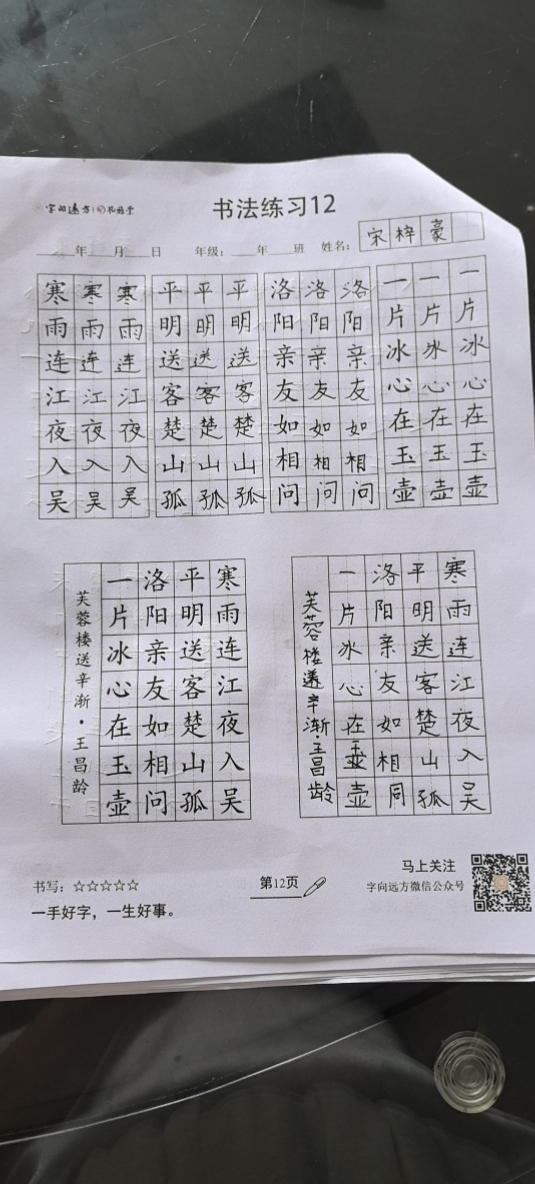 字向远方
书法练习12
年 月 日 年级: 年 班 姓名: 宋梓豪
寒寒寒 平平平 洛洛洛 一一一
雨雨雨 明明明 阳阳阳 片片片
连连连 送送送 亲亲亲 冰冰冰
江江江 客客客 友友友 心心心
夜夜夜 楚楚楚 如如如 在在在
入入入 山山山 相相相 玉玉玉
吴吴吴 孤孤孤 问问问 壶壶壶
寒雨连江夜入吴
平明送客楚山孤
洛阳亲友如相问
一片冰心在玉壶
芙蓉楼送辛渐·王昌龄
寒雨连江夜入吴
平明送客楚山孤
洛阳亲友如相同
一片冰心在壶
芙蓉楼送辛渐·王昌龄
书写: ☆☆☆☆☆
一手好字，一生好事。
第12页
马上关注
字向远方微信公众号